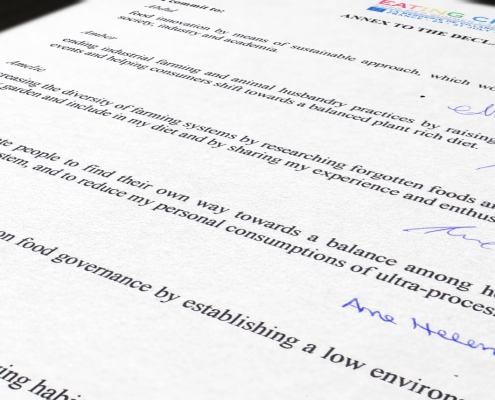 EATING CI
ANNEX TO THE DECL
commit to:
food innovation by means of sustainable approach, which wo
society, industry and academia.
Amber
ending industrial farming and animal husbandry practices by raising
events and helping consumers shift towards a balanced plant rich diet.
Amelie
reasing the diversity of farming systems by researching forgotten foods a
garden and include in my diet and by sharing my experience and enthus
te people to find their own way towards a balance among he
stem, and to reduce my personal consumptions of ultra-process
Ana Helen
on food governance by establishing a low environ
ing habi